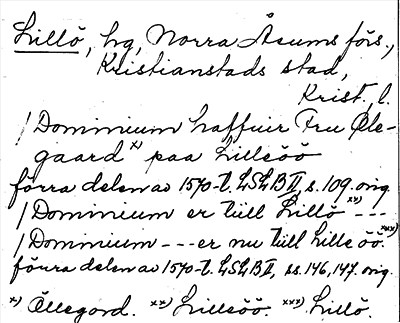 Lillö, hg, Norra Åsums förs.,
Kristianstads stad,
Krist. l.
/ Dominium haffuir Fru Øle-
gaard x) paa Lilleöö
förra delen av 1570-t. LSLB II, s. 109. orig
/ Dominium er tiill Lillö xx) ---
/ Dominium --- er nu tiill Lille öö. xxx)
förra delen av 1570-t. LSLB II, ss. 146, 147. orig.
x) Öllegord. xx) Lilleöö. xxx) Lillö.